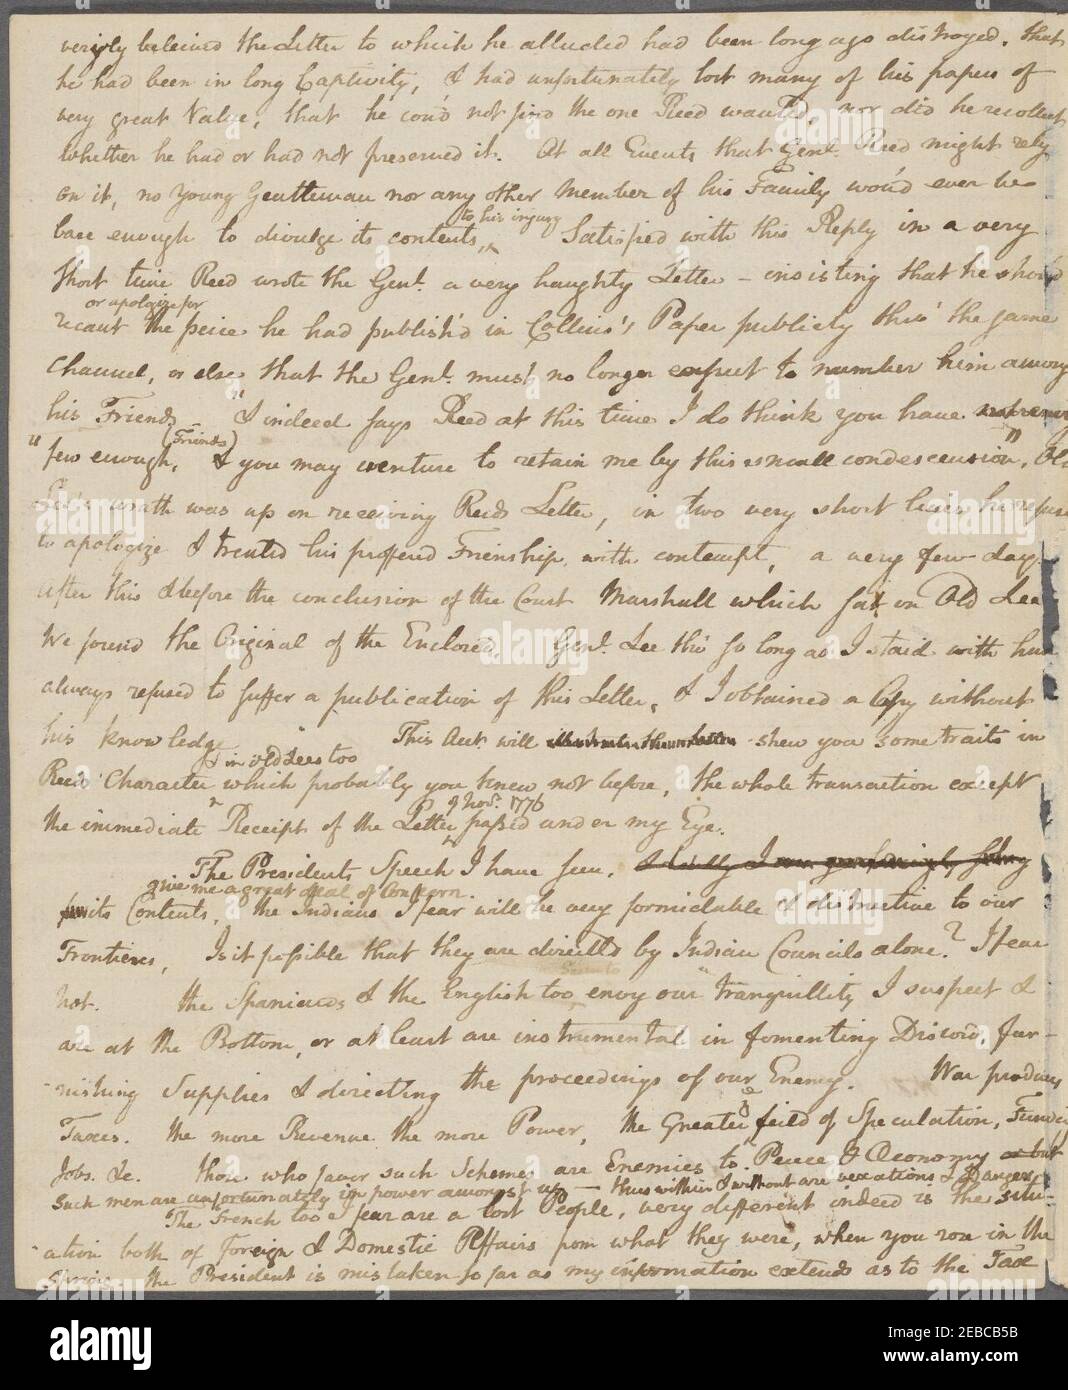 verily beleived the Letter to which he alluded had been long ago distroyed. that
he had been in long Captivity, & had unfortunately lost many of his papers of
very great Value, that he cou'd not find the one Reed wanted, nor did he recollect
whether he had or had not preserved it. At all Events that Genl. Reed might rely
on it, no Young Gentleman nor any other Member of his Family wou'd ever be
to his injury
base enough to divulge its contents, Satisfied with this Reply in a very
short time Reed wrote the Genl. a very haughty Letter – insisting that he should
or apologize for
recant the peice he had publish'd in Collins's Paper publicly thro' the same
Channel, or else that the Genl. must no longer expect to number him among
his Friends "I indeed says Reed at this time I do think you have
(Friends)
"few enough, & you may venture to retain me by this small condescension". Old
Lee's wrath was up on receiving Reeds Letter, in two very short lines he refused
to apologize & treated his proffered Frienship with contempt, a very few days
after this & before the conclusion of the Court Marshall which sat on Old Lee
We found the Original of the Enclosed. Genl. Lee tho' so long as I staid with him
always refused to suffer a publication of this Letter, & I obtained a Copy without
his knowledge This Acct. will shew you some traits in
& in old Lees too
Reeds Character which probably you knew not before, the whole transaction except
of Novr. 1776
the immediate Receipt of the Letter passed under my Eye.
The Presidents Speech I have seen,
give me a great deal of Concern
its Contents, the Indians I fear will be very formidable & distructive to our
Frontiers, Is it possible that they are directed by Indian Councils alone? I fear
not. the Spaniards & the English too, envy our tranquillity I suspect &
are at the Bottom, or at least are instrumental in fomenting Discord, fur-
-nishing Supplies & directing the proceedings of our Enemy. War produces
Taxes. the more Revenue the more Power, the Greater field of Speculation, Funding
Jobs. &c. those who favor such Schemes are Enemies to Peace & Oeconomy but
such men are unfortunately in power amongst us – thus within & without are vexations & Dangers
The French too I fear are a lost People, very different indeed is the situ-
-ation both of Foreign & Domestic Affairs from what they were, when you rose in the
the President is mistaken so far as my information extends as to the Tax
alamy
Image ID: 2EBCB5B
www.alamy.com